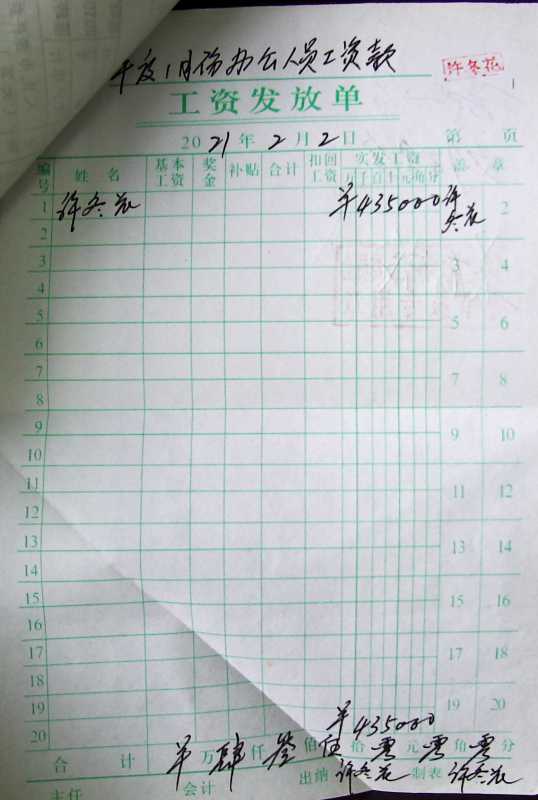 年度1月份办公人员工资款
许冬花
工资发放单
2021年2月2日 第 页
编号 姓名 基本工资 奖金 补贴 合计 扣回工资 实发工资 万千百十元角分 盖章
1 许冬花 羊435000 许冬花 2
2
3 3 4
4
5 5 6
6
7 7 8
8
9 9 10
10
11 11 12
12
13 13 14
14
15 15 16
16
17 17 18
18
19 19 20
20 羊435000
合计 羊万肆仟叁佰伍拾零元零角零分
主任 会计 出纳 许冬花 制表 许冬花